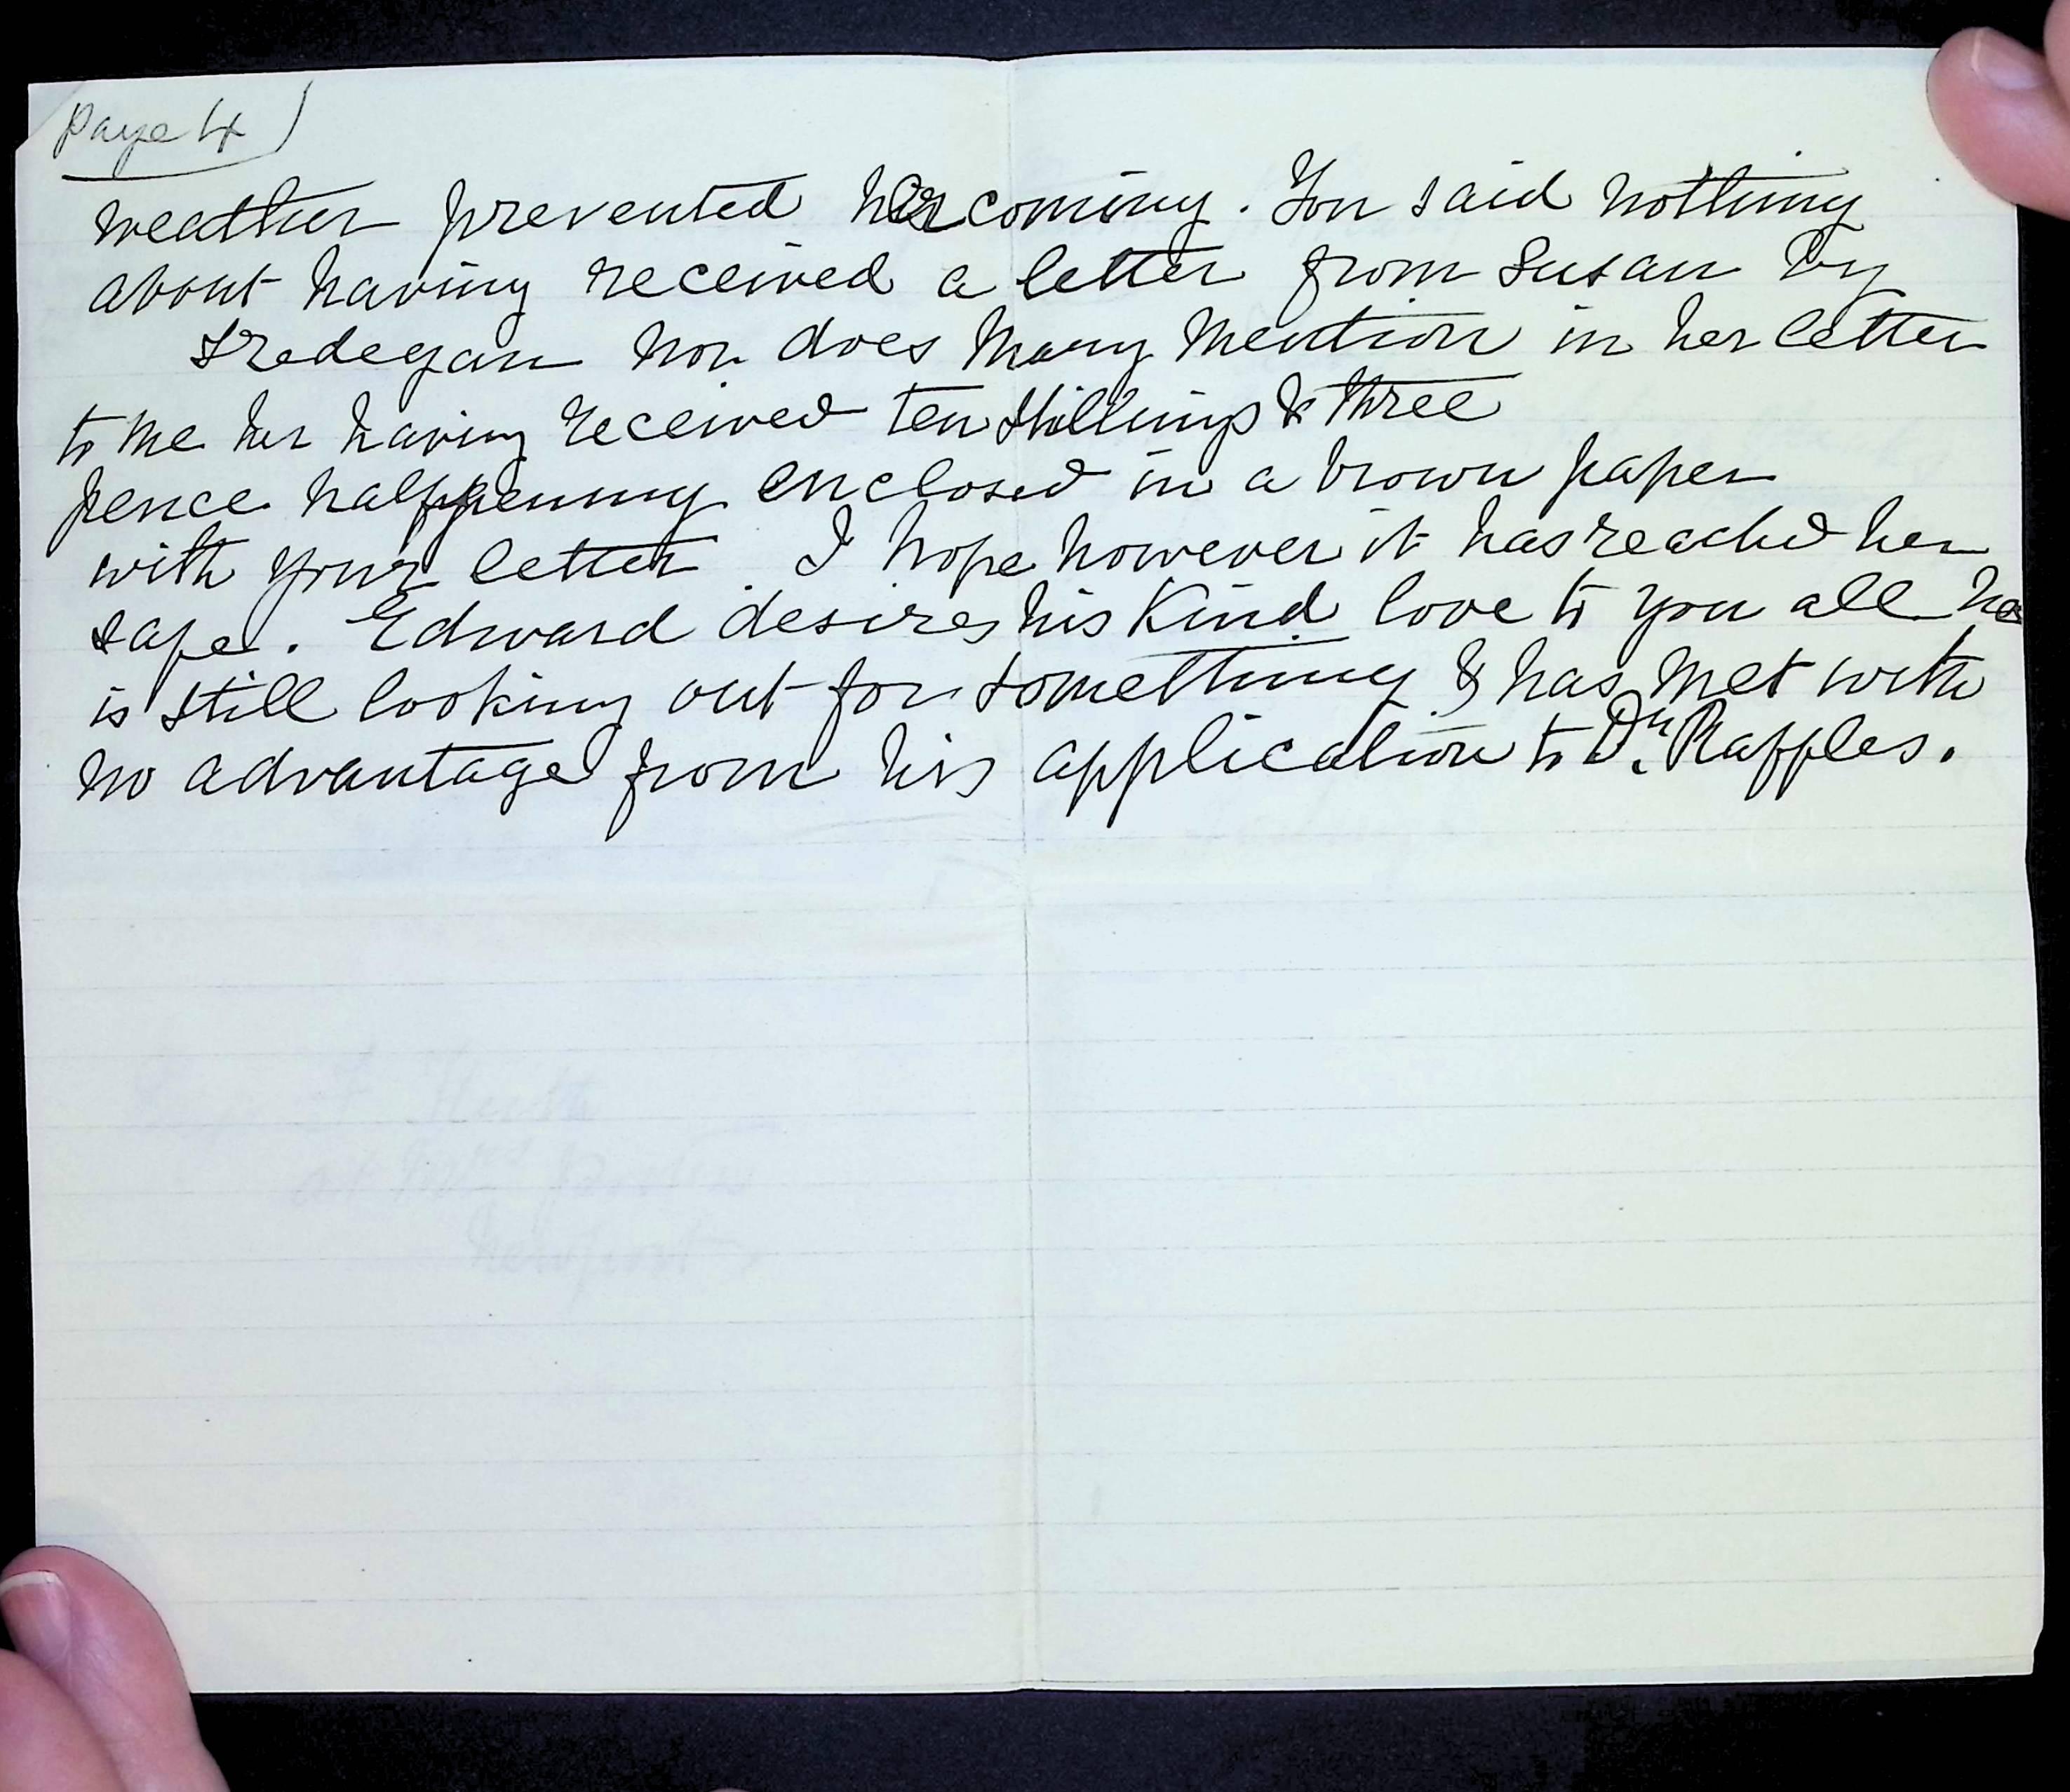 Page 4
weather prevented her coming. You said nothing
about having received a letter from Susan by
Tredegar nor does Mary mention in her letter
to me her having received ten shillings & three
pence halfpenny enclosed in a brown paper
with your letter. I hope however it has reached her
safe. Edward desires his kind love to you all he
is still looking out for something & has met with
no advantage from his application to Dr. Raffles.
at Mrs
Newport